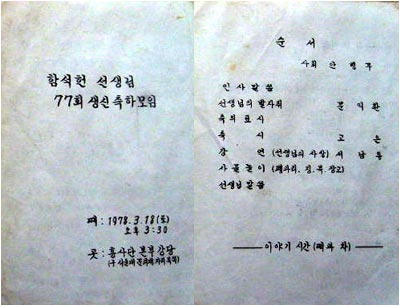 함석헌 선생님
77회 생신축하모임
때: 1978.3.18(토)
오후 3:30
곳: 흥사단 본부강당
순서
사회 안병무
인사말씀
선생님의 발자취 문익환
축의표시
축시 고은
강연 (선생님의 사상) 서남동
사물놀이 (꽹과리, 징, 북, 장고)
선생님 말씀
이야기 시간 (떡과 차)